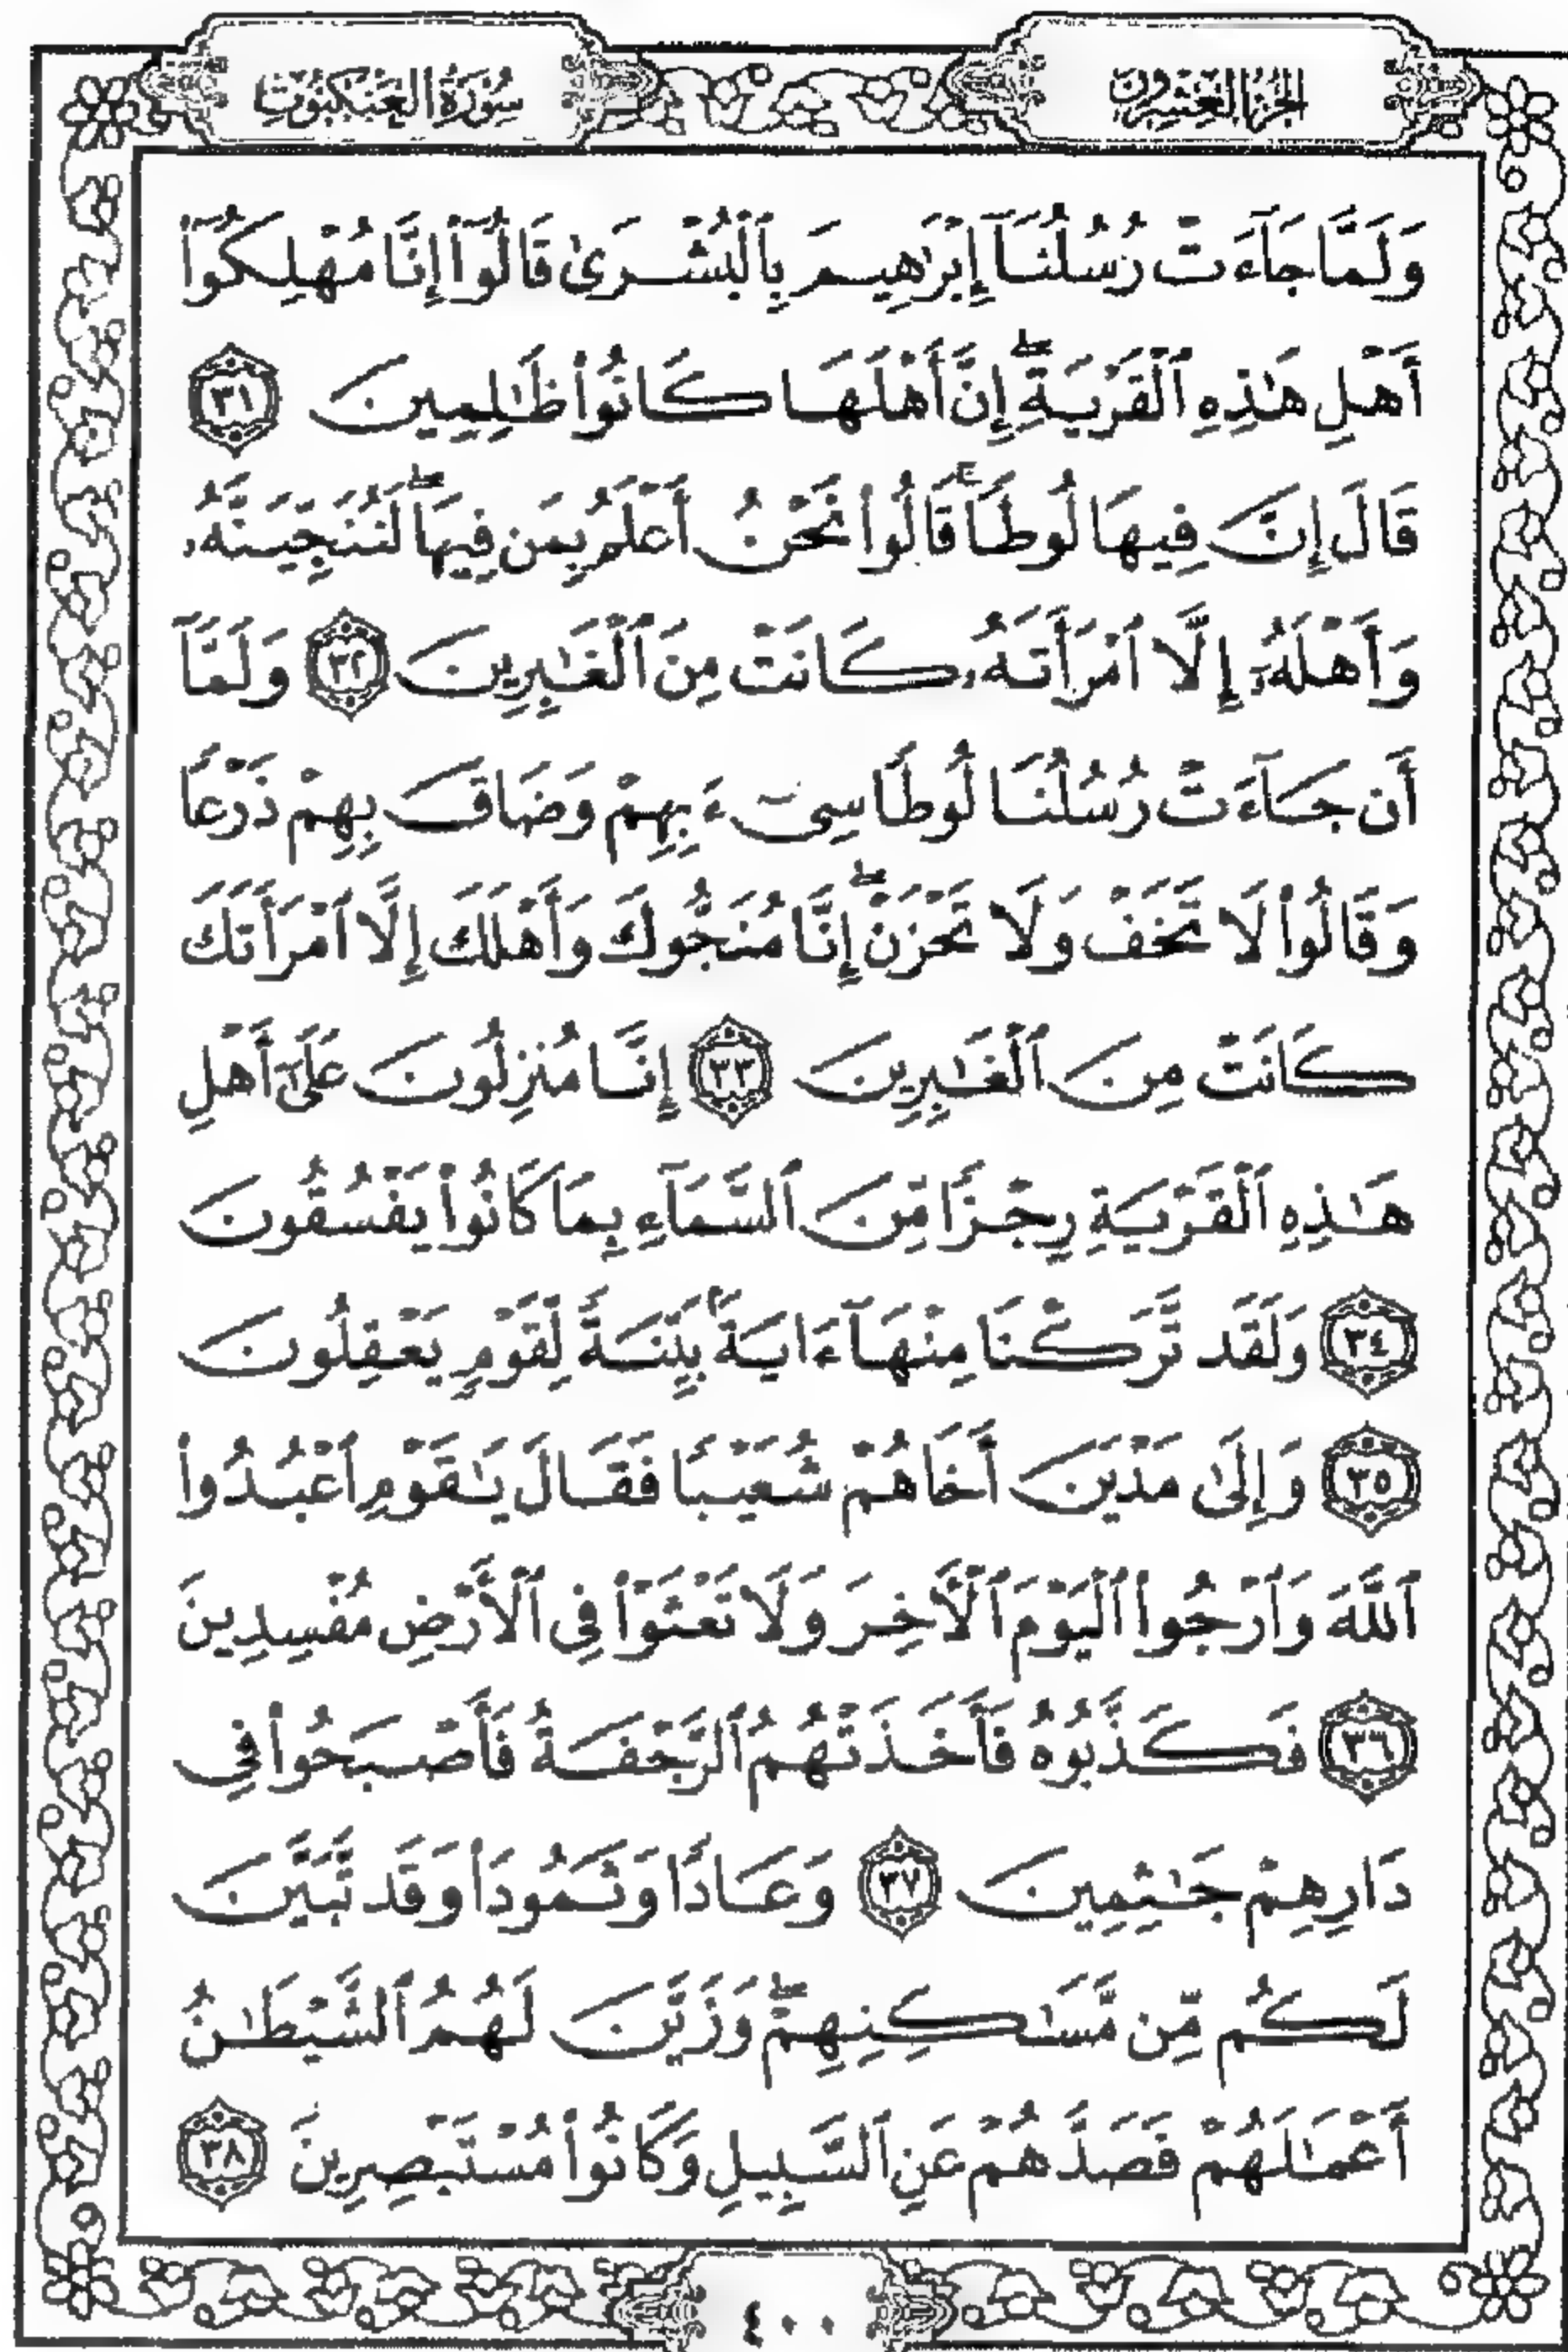 الجزء العشرون
سورة العنكبوت
وَلَمَّا جَآءَتْ رُسُلُنَآ إِبْرَٰهِيمَ بِٱلْبُشْرَىٰ قَالُوٓا۟ إِنَّا مُهْلِكُوٓا۟
أَهْلِ هَٰذِهِ ٱلْقَرْيَةِ ۖ إِنَّ أَهْلَهَا كَانُوا۟ ظَٰلِمِينَ ٣١
قَالَ إِنَّ فِيهَا لُوطًا ۚ قَالُوا۟ نَحْنُ أَعْلَمُ بِمَن فِيهَا ۖ لَنُنَجِّيَنَّهُۥ
وَأَهْلَهُۥٓ إِلَّا ٱمْرَأَتَهُۥ كَانَتْ مِنَ ٱلْغَٰبِرِينَ ٣٢ وَلَمَّآ
أَن جَآءَتْ رُسُلُنَا لُوطًا سِىٓءَ بِهِمْ وَضَاقَ بِهِمْ ذَرْعًا
وَقَالُوا۟ لَا تَخَفْ وَلَا تَحْزَنْ ۖ إِنَّا مُنَجُّوكَ وَأَهْلَكَ إِلَّا ٱمْرَأَتَكَ
كَانَتْ مِنَ ٱلْغَٰبِرِينَ ٣٣ إِنَّا مُنزِلُونَ عَلَىٰٓ أَهْلِ
هَٰذِهِ ٱلْقَرْيَةِ رِجْزًا مِّنَ ٱلسَّمَآءِ بِمَا كَانُوا۟ يَفْسُقُونَ
٣٤ وَلَقَد تَّرَكْنَا مِنْهَآ ءَايَةًۢ بَيِّنَةً لِّقَوْمٍ يَعْقِلُونَ
٣٥ وَإِلَىٰ مَدْيَنَ أَخَاهُمْ شُعَيْبًا فَقَالَ يَٰقَوْمِ ٱعْبُدُوا۟
ٱللَّهَ وَٱرْجُوا۟ ٱلْيَوْمَ ٱلْـَٔاخِرَ وَلَا تَعْثَوْا۟ فِى ٱلْأَرْضِ مُفْسِدِينَ
٣٦ فَكَذَّبُوهُ فَأَخَذَتْهُمُ ٱلرَّجْفَةُ فَأَصْبَحُوا۟ فِى
دَارِهِمْ جَٰثِمِينَ ٣٧ وَعَادًا وَثَمُودَا۟ وَقَد تَّبَيَّنَ
لَكُم مِّن مَّسَٰكِنِهِمْ ۖ وَزَيَّنَ لَهُمُ ٱلشَّيْطَٰنُ
أَعْمَٰلَهُمْ فَصَدَّهُمْ عَنِ ٱلسَّبِيلِ وَكَانُوا۟ مُسْتَبْصِرِينَ ٣٨
٤٠٠